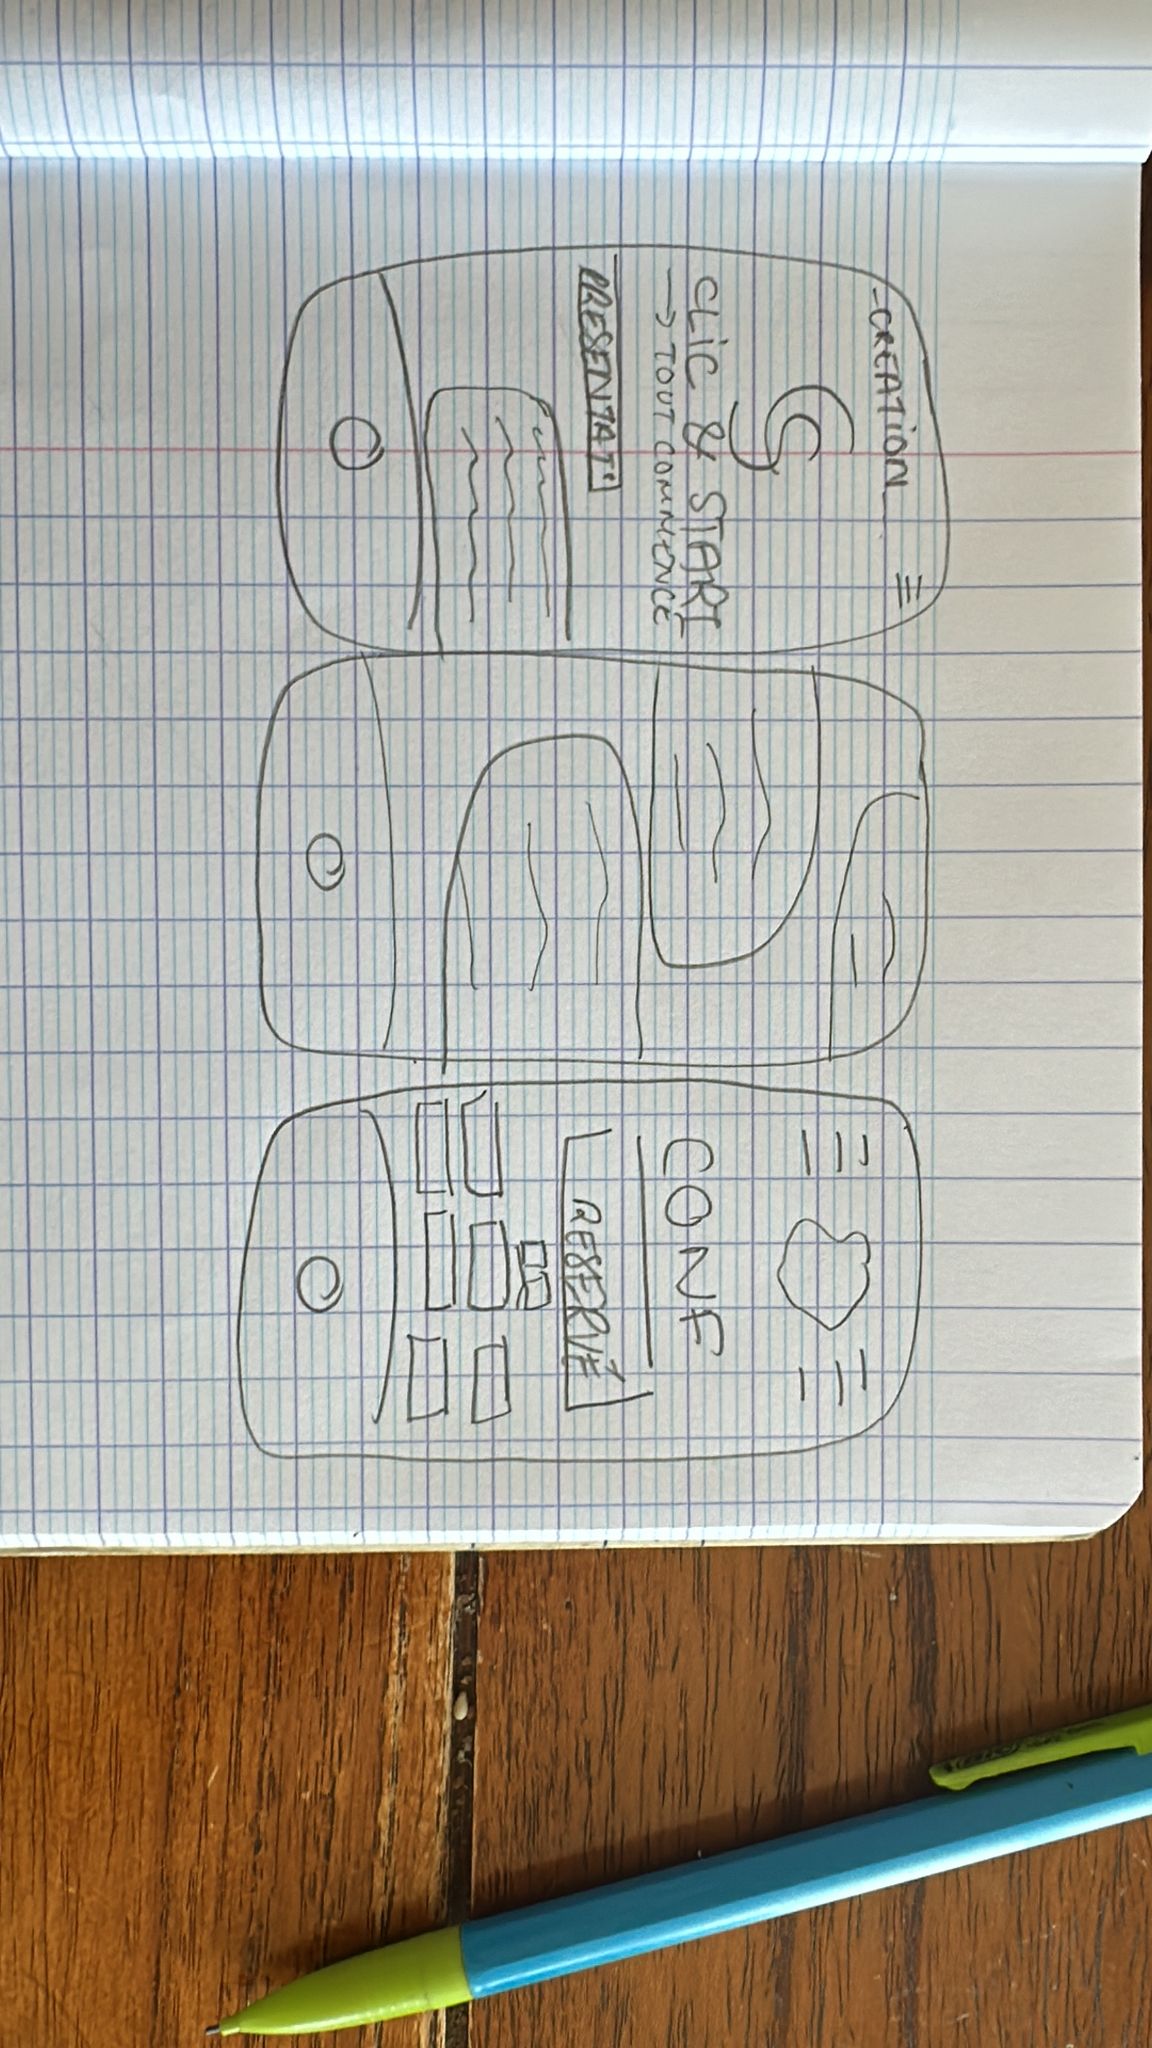 CREATION
CLIC & START
→ TOUT COMMENCE
PRESENTAT°
CONF
RESERVÉ